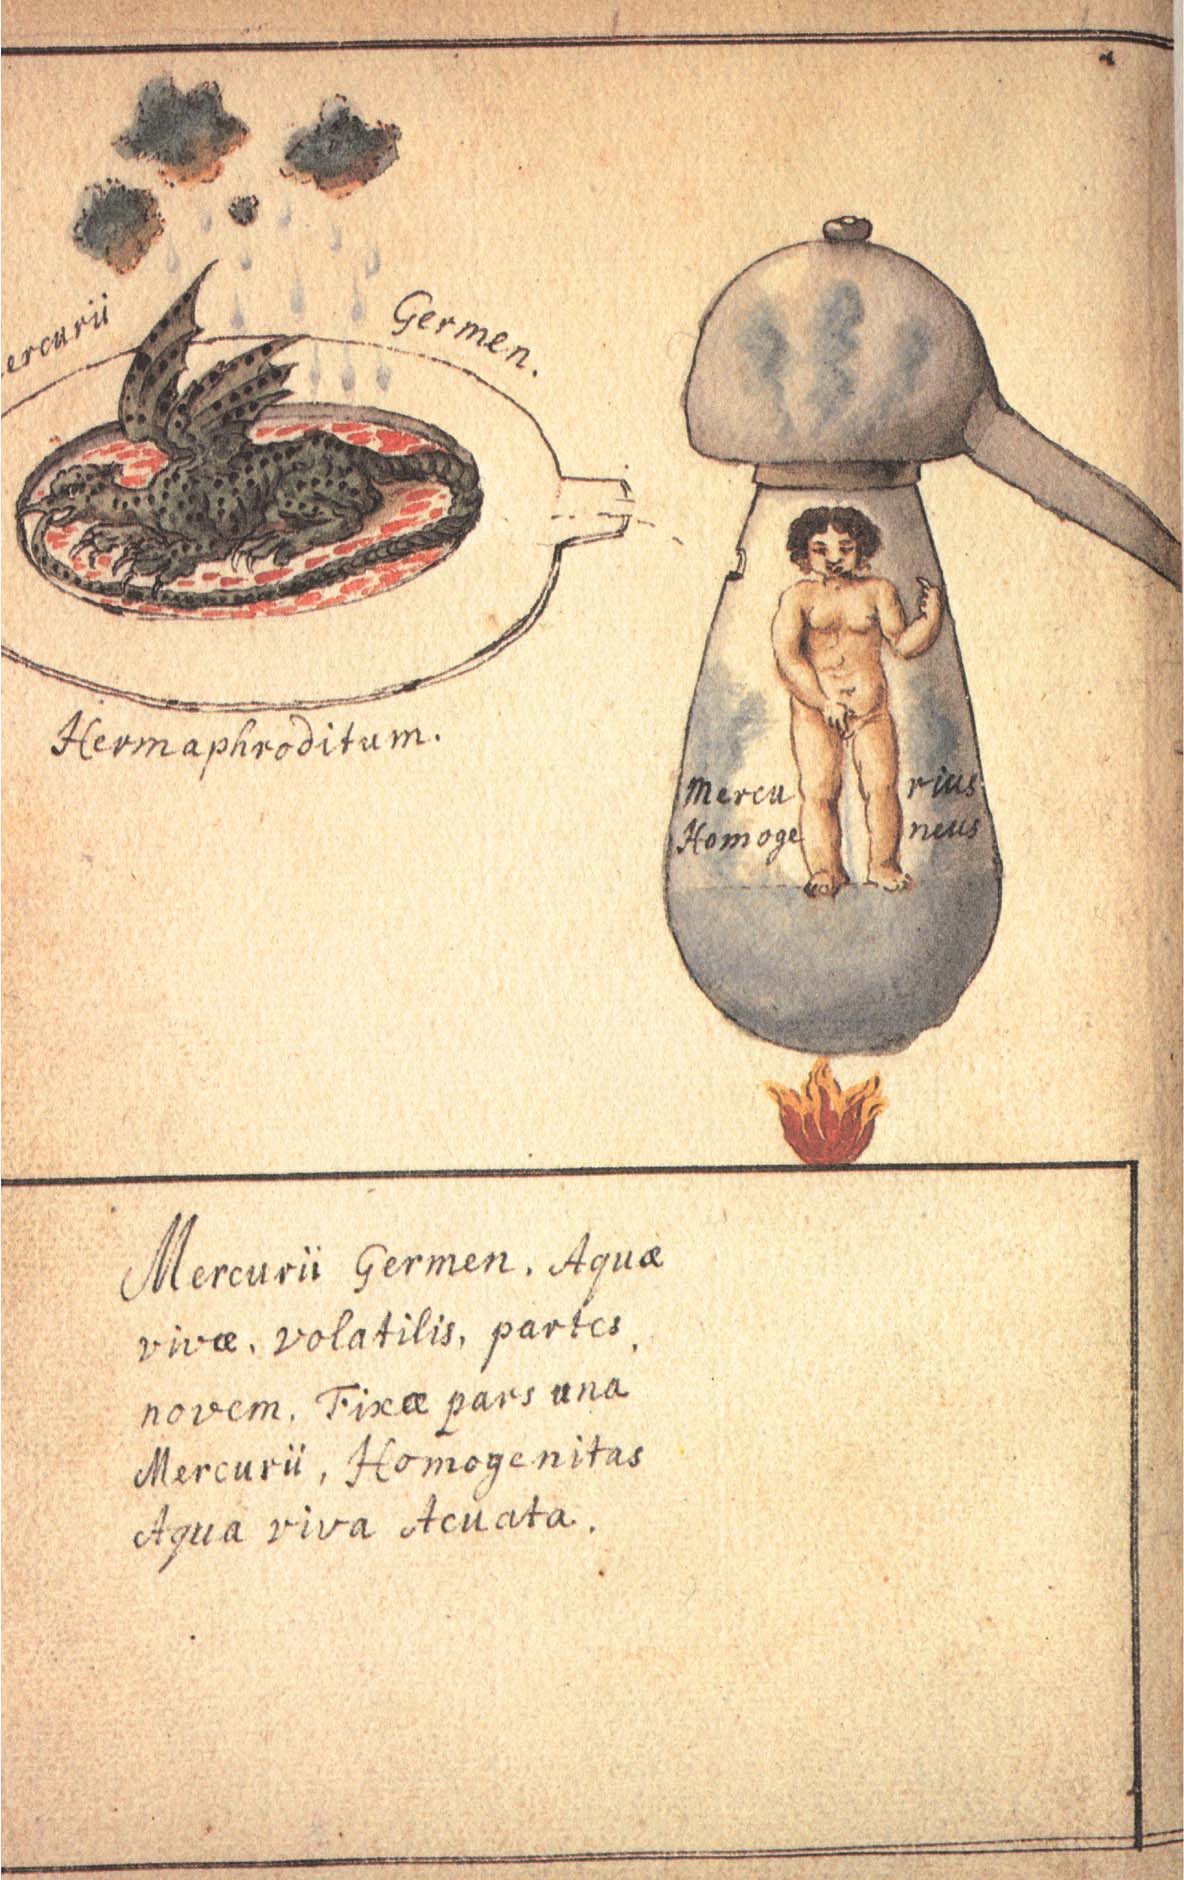 ercurii Germen.
Hermaphroditum.
Mercu rius
Homoge neus
Mercurii Germen. Aquæ
vivæ. volatilis, partes,
novem. Fixæ pars una
Mercurii, Homogenitas
Aqua viva Acuata.